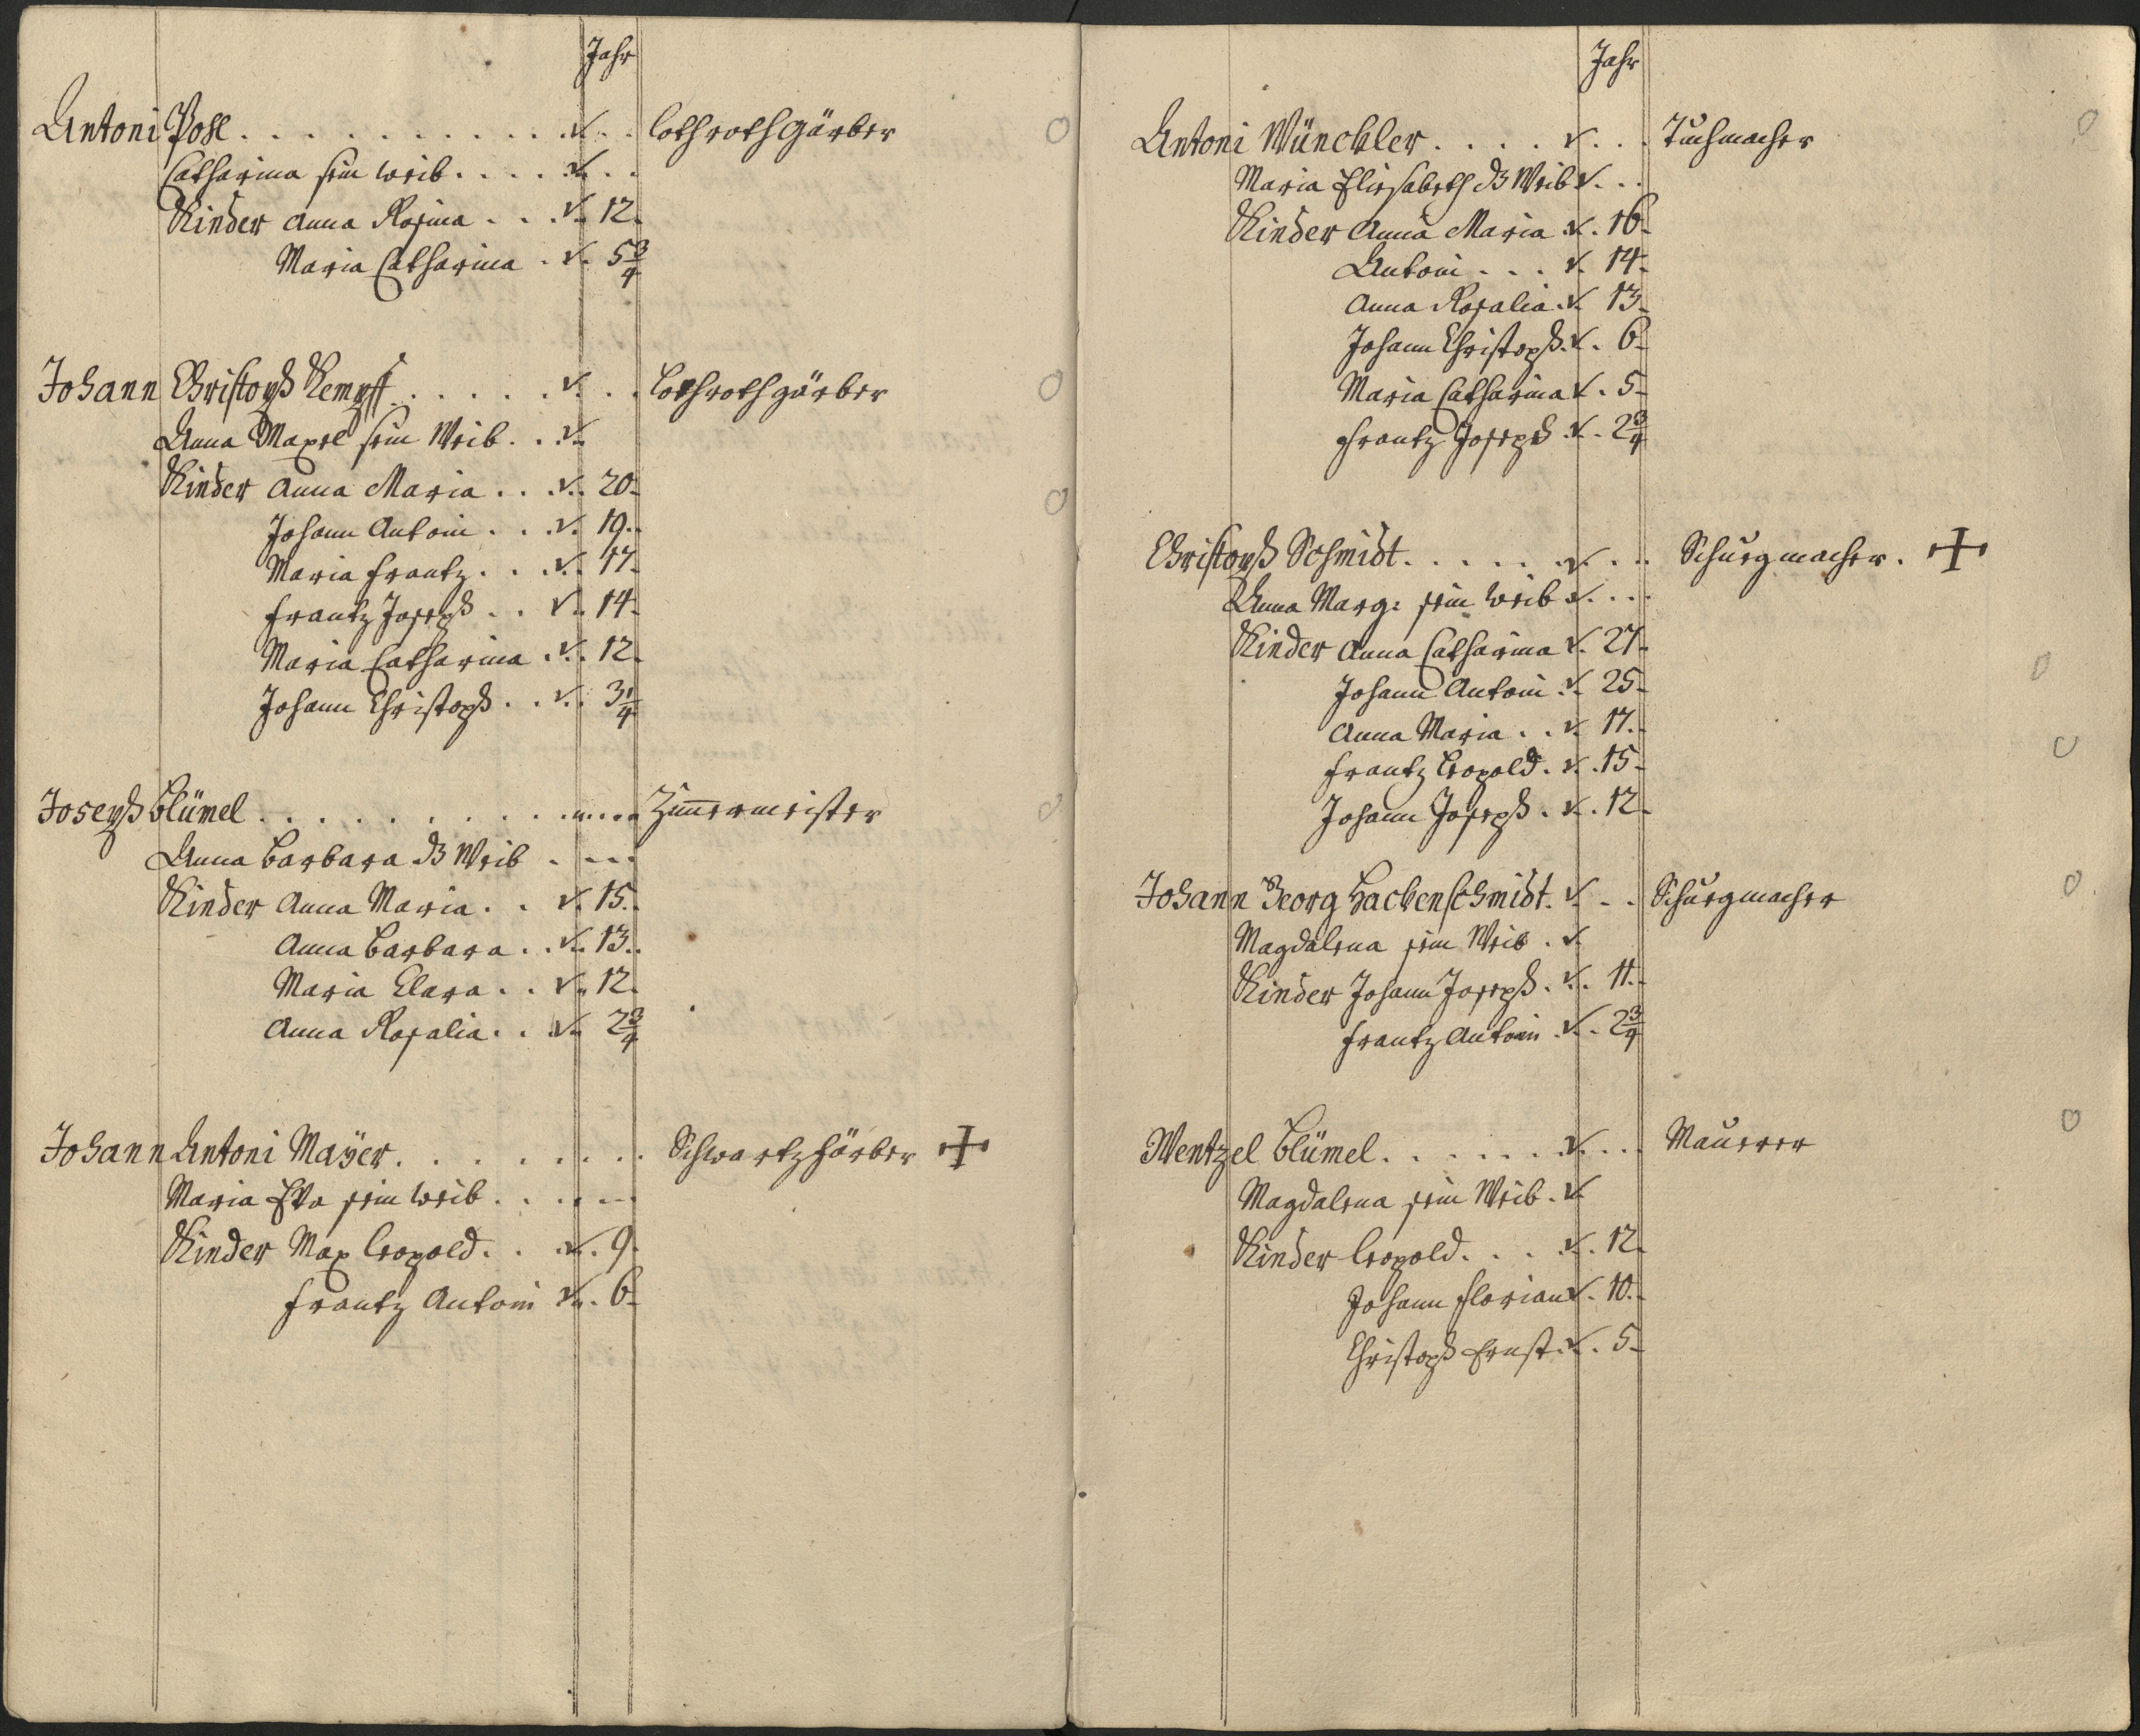 Jahr
Antoni Pohl . . . . . . . . . . . . v. . . Lothrothgärber
Catharina sein weib . . . . v. . .
Kinder Anna Rosina . . . v. 12.
Maria Catharina . v. 5 3/4
Johann Christoph Kempff . . . . . . v. . . Lothrothgärber
Anna sein Weib . . v.
Kinder Anna Maria . . . v. 20.
Johann Antoni . . . v. 19.
Maria Frantz . . . v. 17.
Frantz Joseph . . v. 14.
Maria Catharina . v. 12.
Johann Christoph . . v. 3 1/4
Joseph Blümel . . . . . . . . . . . . Zim̄ermeister
Anna Barbara ds Weib . . . .
Kinder Anna Maria . . v. 15.
Anna Barbara . . v. 13.
Maria Clara . . v. 12.
Anna Rosalia . . v. 2 3/4
Johann Antoni Maÿer . . . . . . . . . Schwartzfärber +
Maria Eva sein weib . . . . .
Kinder Max Leopold . . v. 9.
Frantz Antoni v. 6.
Jahr
Antoni Wünckler . . . . v. . . Tuchmacher
Maria Eliesabeth ds Weib v. . .
Kinder Anna Maria v. 16.
Antoni . . . v. 14.
Anna Rosalia v. 13.
Johann Christoph v. 6.
Maria Catharina v. 5.
Frantz Joseph v. 2 3/4
Christoph Schmidt . . . . . . v. . . Schuegmacher. +
Anna Marg: sein weib v. . .
Kinder Anna Catharina v. 27.
Johann Antoni v. 25.
Anna Maria . . v. 17.
Frantz Leopold . v. 15.
Johann Joseph . v. 12.
Johann Georg Hackenschmidt . v. . . Schuegmacher
Magdalena sein Weib . v.
Kinder Johann Joseph . v. 11.
Frantz Antoni . v. 2 3/4
Wentzel Blümel . . . . . . . v. . . Maurer
Magdalena sein Weib . v.
Kinder Leopold . . . v. 12.
Johann Florian v. 10.
Christoph Ernst v. 5.